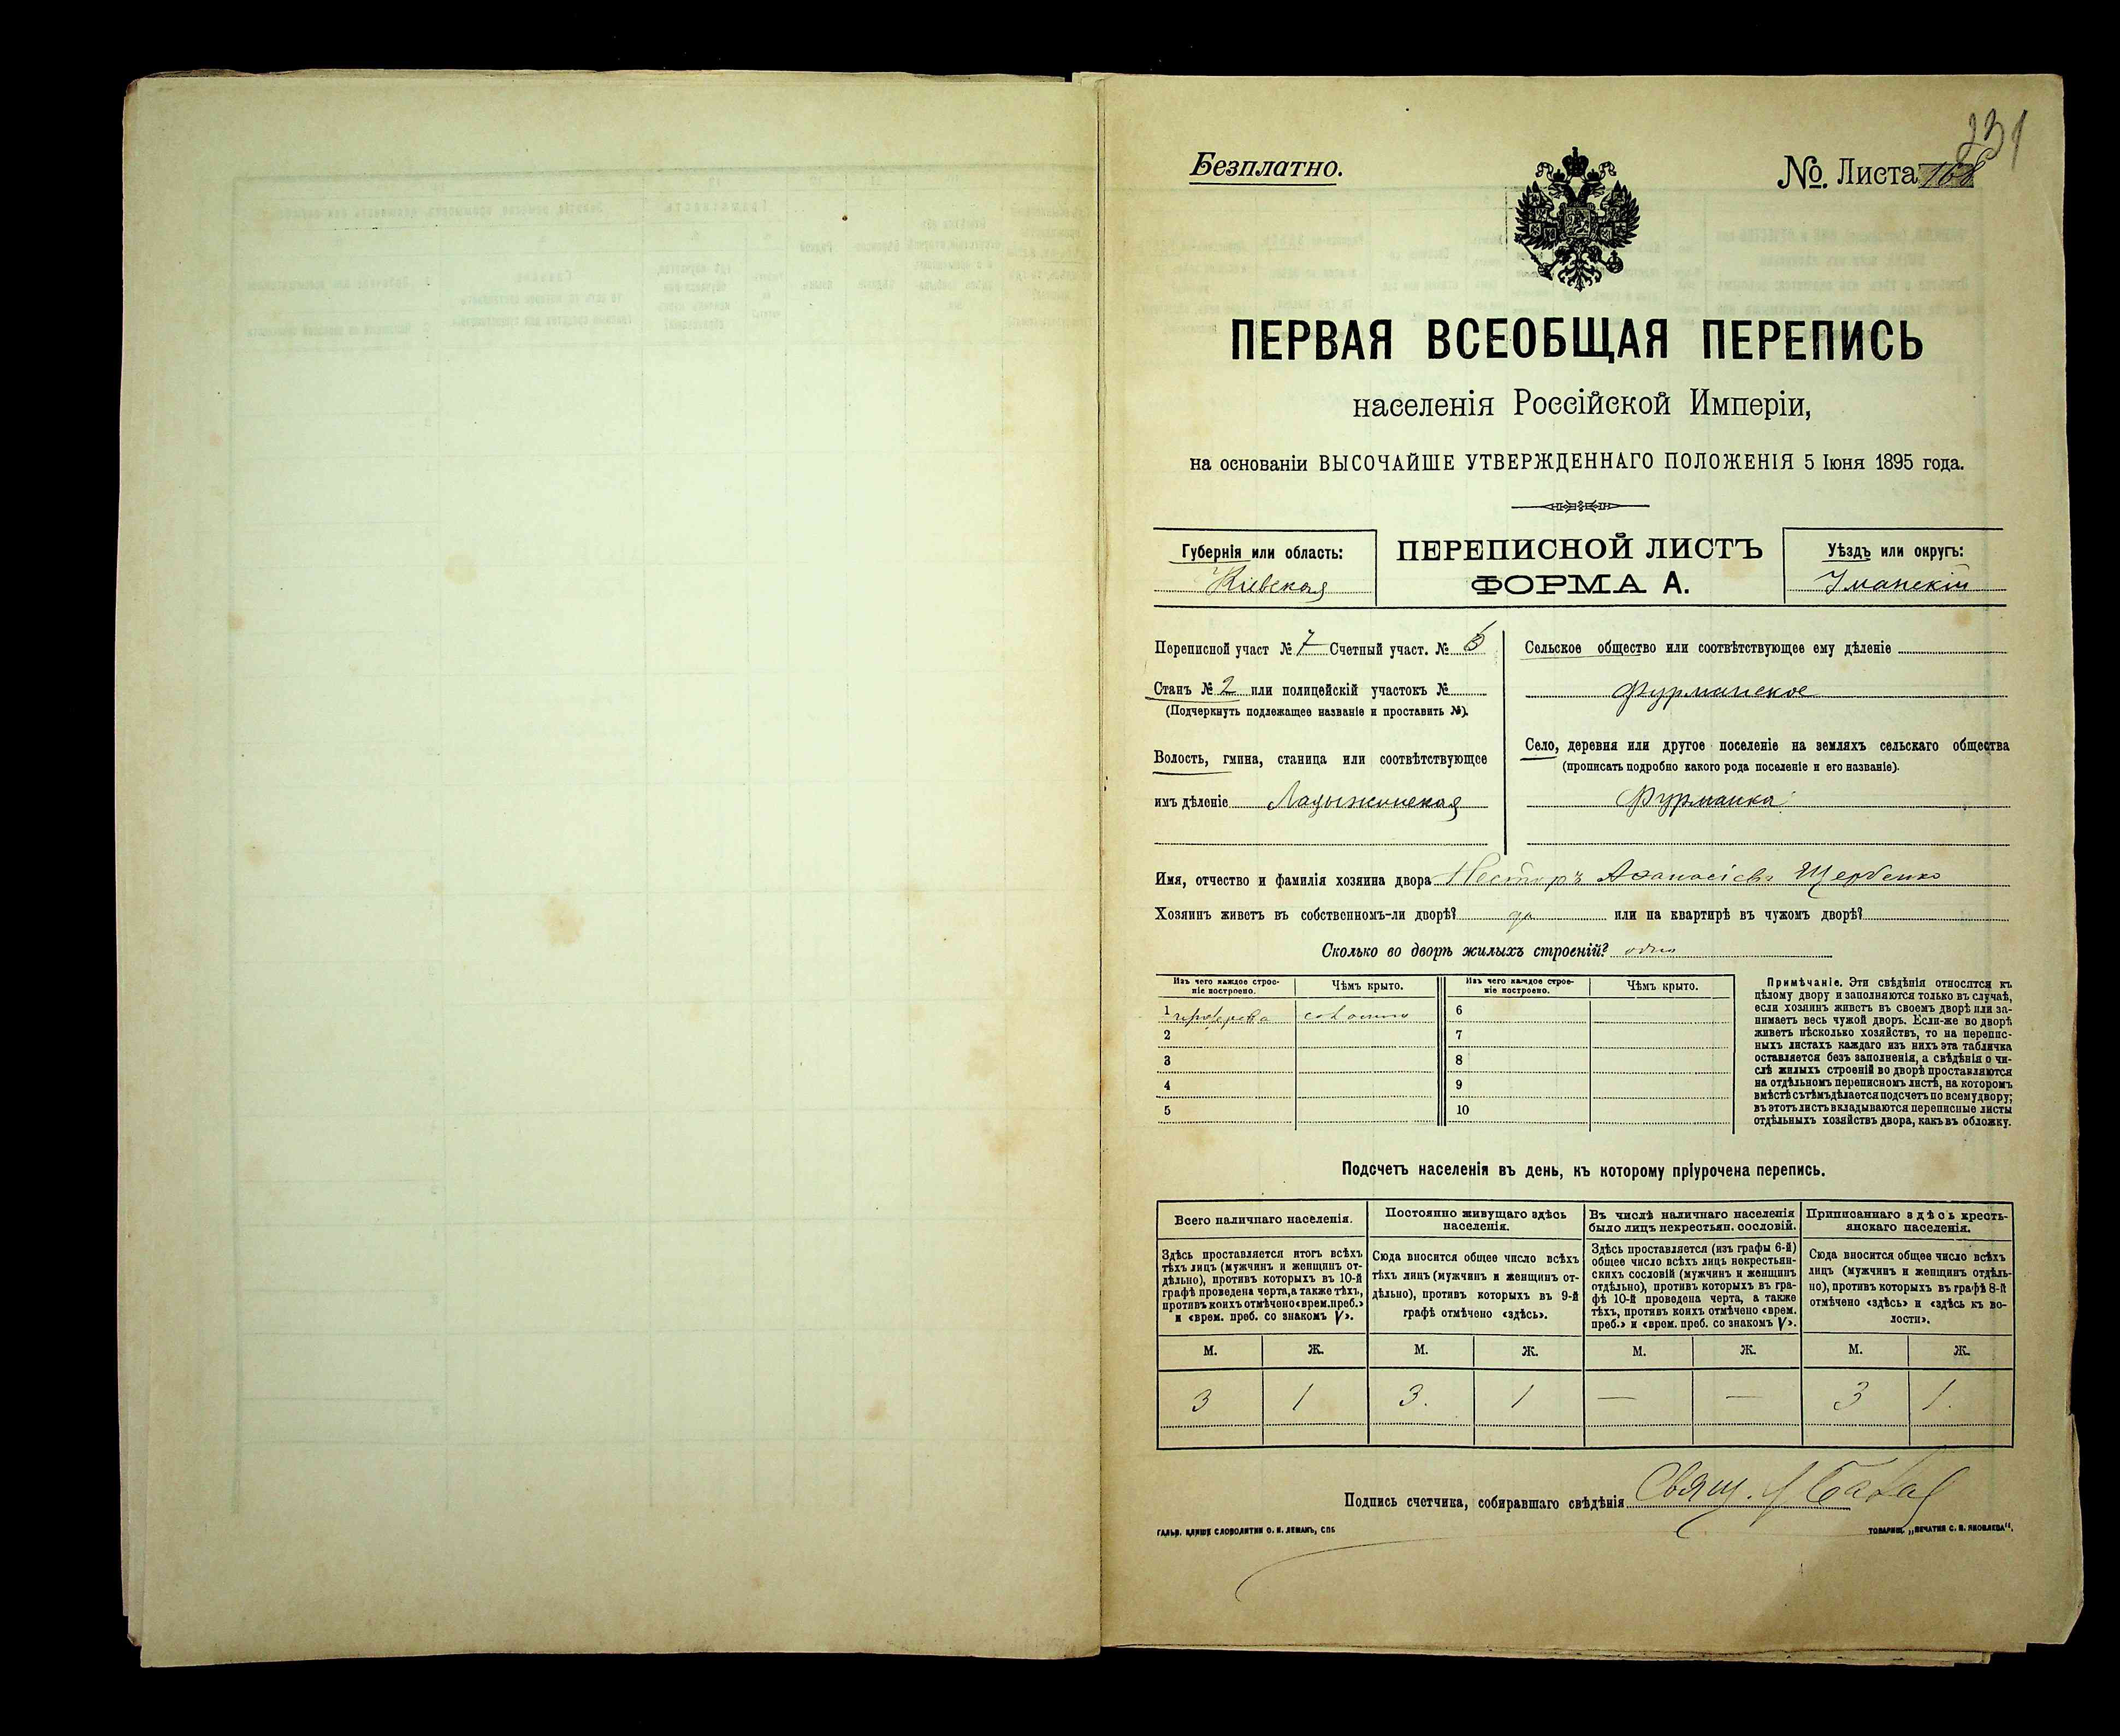 231
Безплатно.
№ Листа 168
ПЕРВАЯ ВСЕОБЩАЯ ПЕРЕПИСЬ
населенія Россійской Имперіи,
на основаніи ВЫСОЧАЙШЕ УТВЕРЖДЕННАГО ПОЛОЖЕНІЯ 5 Іюня 1895 года.
Губернія или область:
Кіевская
ПЕРЕПИСНОЙ ЛИСТЪ
ФОРМА А.
Уѣздъ или округъ:
Уманскій
Переписной участ № 7 Счетный участ. № 6
Станъ № 2 или полицейскій участокъ №
(Подчеркнуть подлежащее названіе и проставить №).
Волость, гмина, станица или соотвѣтствующее
имъ дѣленіе Ладыжинская
Сельское общество или соотвѣтствующее ему дѣленіе
Фурманское
Село, деревня или другое поселеніе на земляхъ сельскаго общества
(прописать подробно какого рода поселеніе и его названіе).
Фурманка
Имя, отчество и фамилія хозяина двора Несторъ Аѳанасіевъ Щербенко
Хозяинъ живетъ въ собственномъ-ли дворѣ? да или на квартирѣ въ чужомъ дворѣ?
Сколько во дворѣ жилыхъ строеній? одно
Изъ чего каждое строе-
ніе построено.
Чѣмъ крыто.
Изъ чего каждое строе-
ніе построено.
Чѣмъ крыто.
1 соломою 6
2 7
3 8
4 9
5 10
Примѣчаніе. Эти свѣдѣнія относятся къ
цѣлому двору и заполняются только въ случаѣ,
если хозяинъ живетъ въ своемъ дворѣ или за-
нимаетъ весь чужой дворъ. Если-же во дворѣ
живетъ нѣсколько хозяйствъ, то на перепис-
ныхъ листахъ каждаго изъ нихъ эта табличка
оставляется безъ заполненія, а свѣдѣнія о чи-
слѣ жилыхъ строеній во дворѣ проставляются
на отдѣльномъ переписномъ листѣ, на которомъ
вмѣстѣ съ тѣмъ дѣлается подсчетъ по всему двору;
въ этотъ листъ вкладываются переписные листы
отдѣльныхъ хозяйствъ двора, какъ въ обложку.
Подсчетъ населенія въ день, къ которому пріурочена перепись.
Всего наличнаго населенія.
Постоянно живущаго здѣсь
населенія.
Въ числѣ наличнаго населенія
было лицъ некрестьян. сословій.
Приписаннаго здѣсь кресть-
янскаго населенія.
Здѣсь проставляется итогъ всѣхъ
тѣхъ лицъ (мужчинъ и женщинъ от-
дѣльно), противъ которыхъ въ 10-й
графѣ проведена черта, а также тѣхъ,
противъ коихъ отмѣчено «врем. преб.»
и «врем. преб. со знакомъ V».
Сюда вносится общее число всѣхъ
тѣхъ лицъ (мужчинъ и женщинъ от-
дѣльно), противъ которыхъ въ 9-й
графѣ отмѣчено «здѣсь».
Здѣсь проставляется (изъ графы 6-й)
общее число всѣхъ лицъ некрестьян-
скихъ сословій (мужчинъ и женщинъ
отдѣльно), противъ которыхъ въ гра-
фѣ 10-й проведена черта, а также
тѣхъ, противъ коихъ отмѣчено «врем.
преб.» и «врем. преб. со знакомъ V».
Сюда вносится общее число всѣхъ
лицъ (мужчинъ и женщинъ отдѣль-
но), противъ которыхъ въ графѣ 8-й
отмѣчено «здѣсь» и «здѣсь къ во-
лости».
М. Ж. М. Ж. М. Ж. М. Ж.
3 1 3. 1 — — 3 1.
Подпись счетчика, собиравшаго свѣдѣнія Свящ.
ГАЛЬВ. КЛИШЕ СЛОВОЛИТНИ О. И. ЛЕМАНЪ, СПБ
ТОВАРИЩ. „ПЕЧАТНЯ С. П. ЯКОВЛЕВА“.